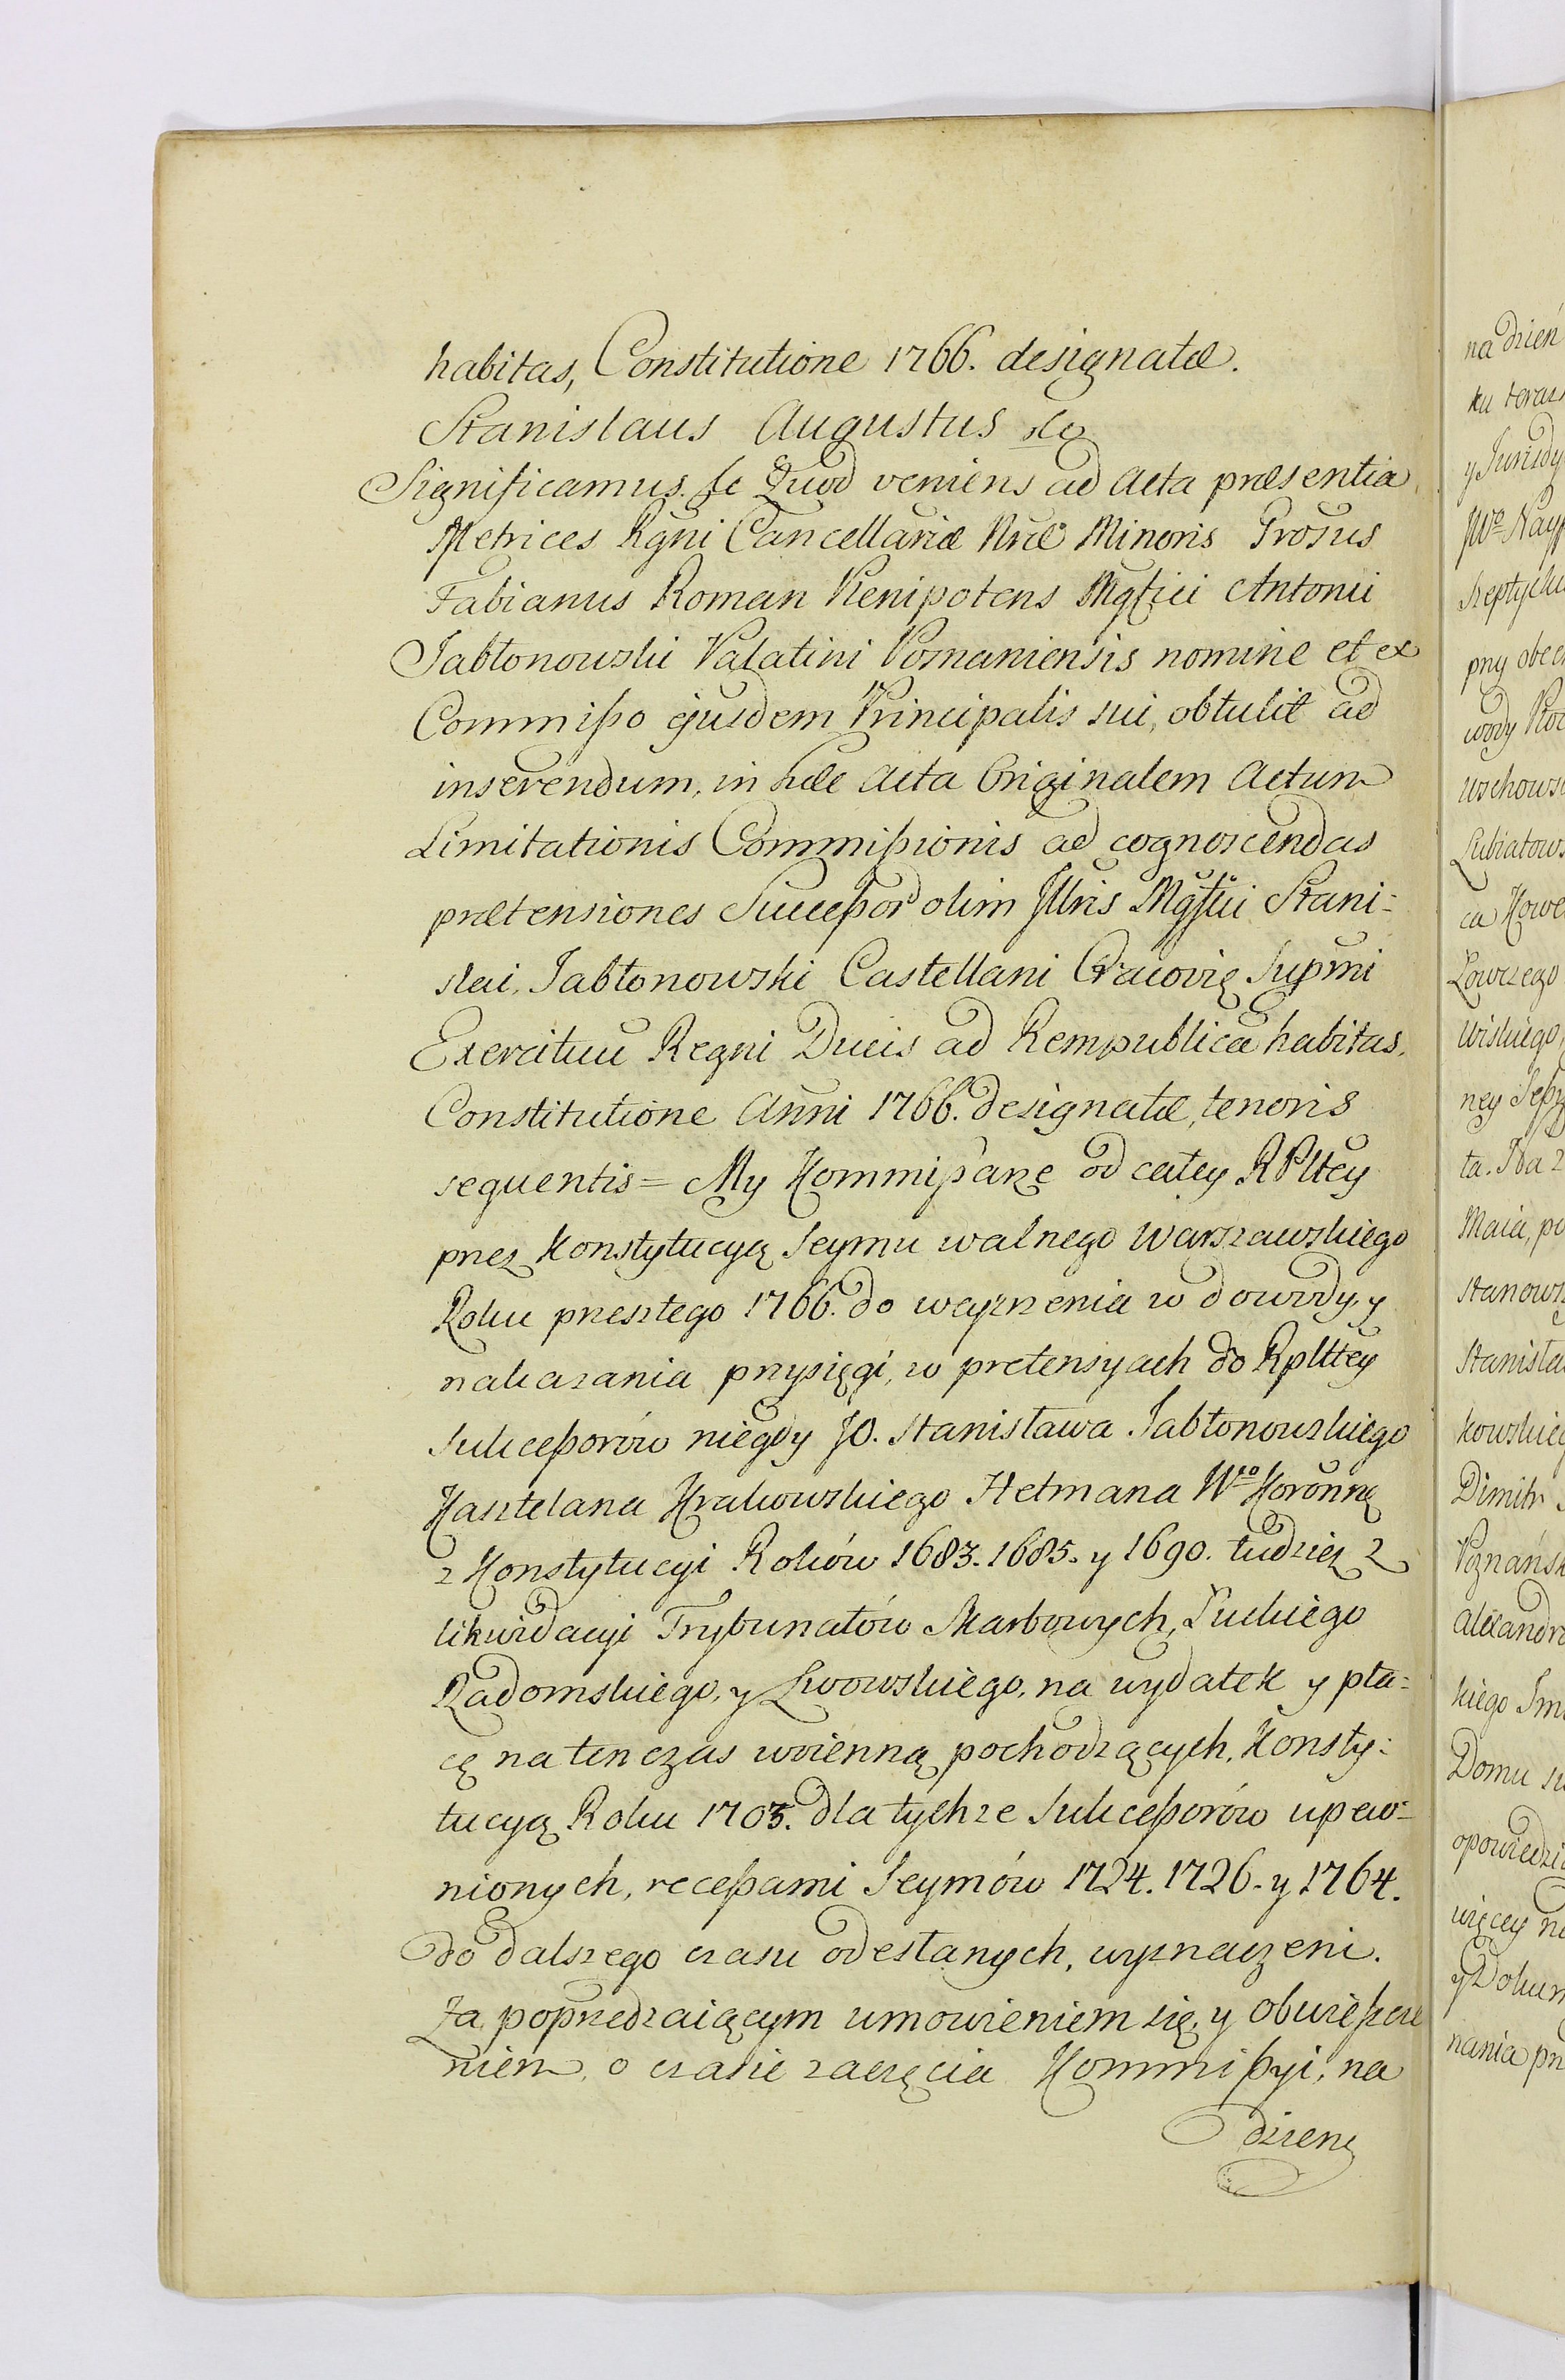 habitas, Constitutione 1766. designatæ.
Stanislaus Augustus &c
Significamus. &c Quod veniens ad Acta præsentia
Metrices Rgni Cancellariæ Nræ Minoris Grosus
Fabianus Roman Plenipotens Mgfici Antonii
Jabłonowski Palatini Posnaniensis nomine et ex
Commißo ejusdem Principalis sui, obtulit ad
inserendum, in hæc Acta Originalem Actum
Limitationis Commißionis ad cognoscendas
prætensiones Succeßor̄ olim Jllris Mgfici Stani=
slai, Jabłonowski Castellani Cracovię Supmi
Exercituū Regni Ducis ad Rempublicā habitas,
Constitutione Anni 1766. designatæ, tenoris
sequentis = My Kommißarze od całey RPltey
przez Konstytucyą Seymu walnego Warszawskiego
Roku przeszłego 1766. do weyrzenia w dowody, y
nakazania przysięgi, w pretensyach do Rplttey
Sukceßorów niegdy JO. Stanisława Jabłonowskiego
Kasztelana Krakowskiego Hetmana Wgo Koronnę
z Konstytucyi Roków 1683. 1685. y 1690. tudzież z
likwidacyi Trybunałów Skarbowych, Łuckiego
Radomskiego, y Lwowskiego, na wydatek y pła=
cę na ten czas woienną pochodzących, Konsty=
tucyą Roku 1703. dla tychże Sukceßorów upew=
nionych, receßami Seymów 1724. 1726. y 1764.
do dalszego czasu odesłanych, wyznaczeni.
Za poprzedzaiącym umowieniem się, y obwießcze
niem, o czasie zaczęcia Kommißyi, na
dzień
na dzień
ku teraz
y Jurisdy
JWo Nayp
Szeptycki
przy obec
wody
Lubiatow
ca Kowe
Łowczego
Wiskiego
ta.
Maia, po
Stanow
Stanisła
kowskieg
Dimitr
Poznańsk
Alexandr
kiego
Domu
opowiedzi
więcey
y Dokum
nania prz